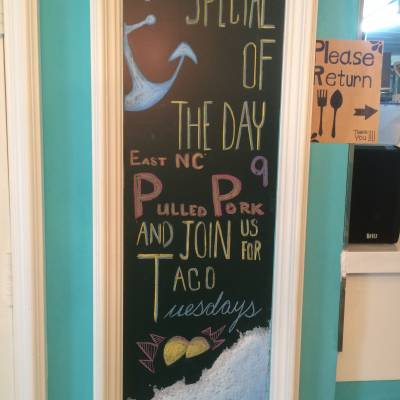 SPECIAL
OF
THE DAY
EAST NC 9
PULLED PORK
AND JOIN US FOR
TACO
Tuesdays
Please
Return
Thank you!!!
BHU